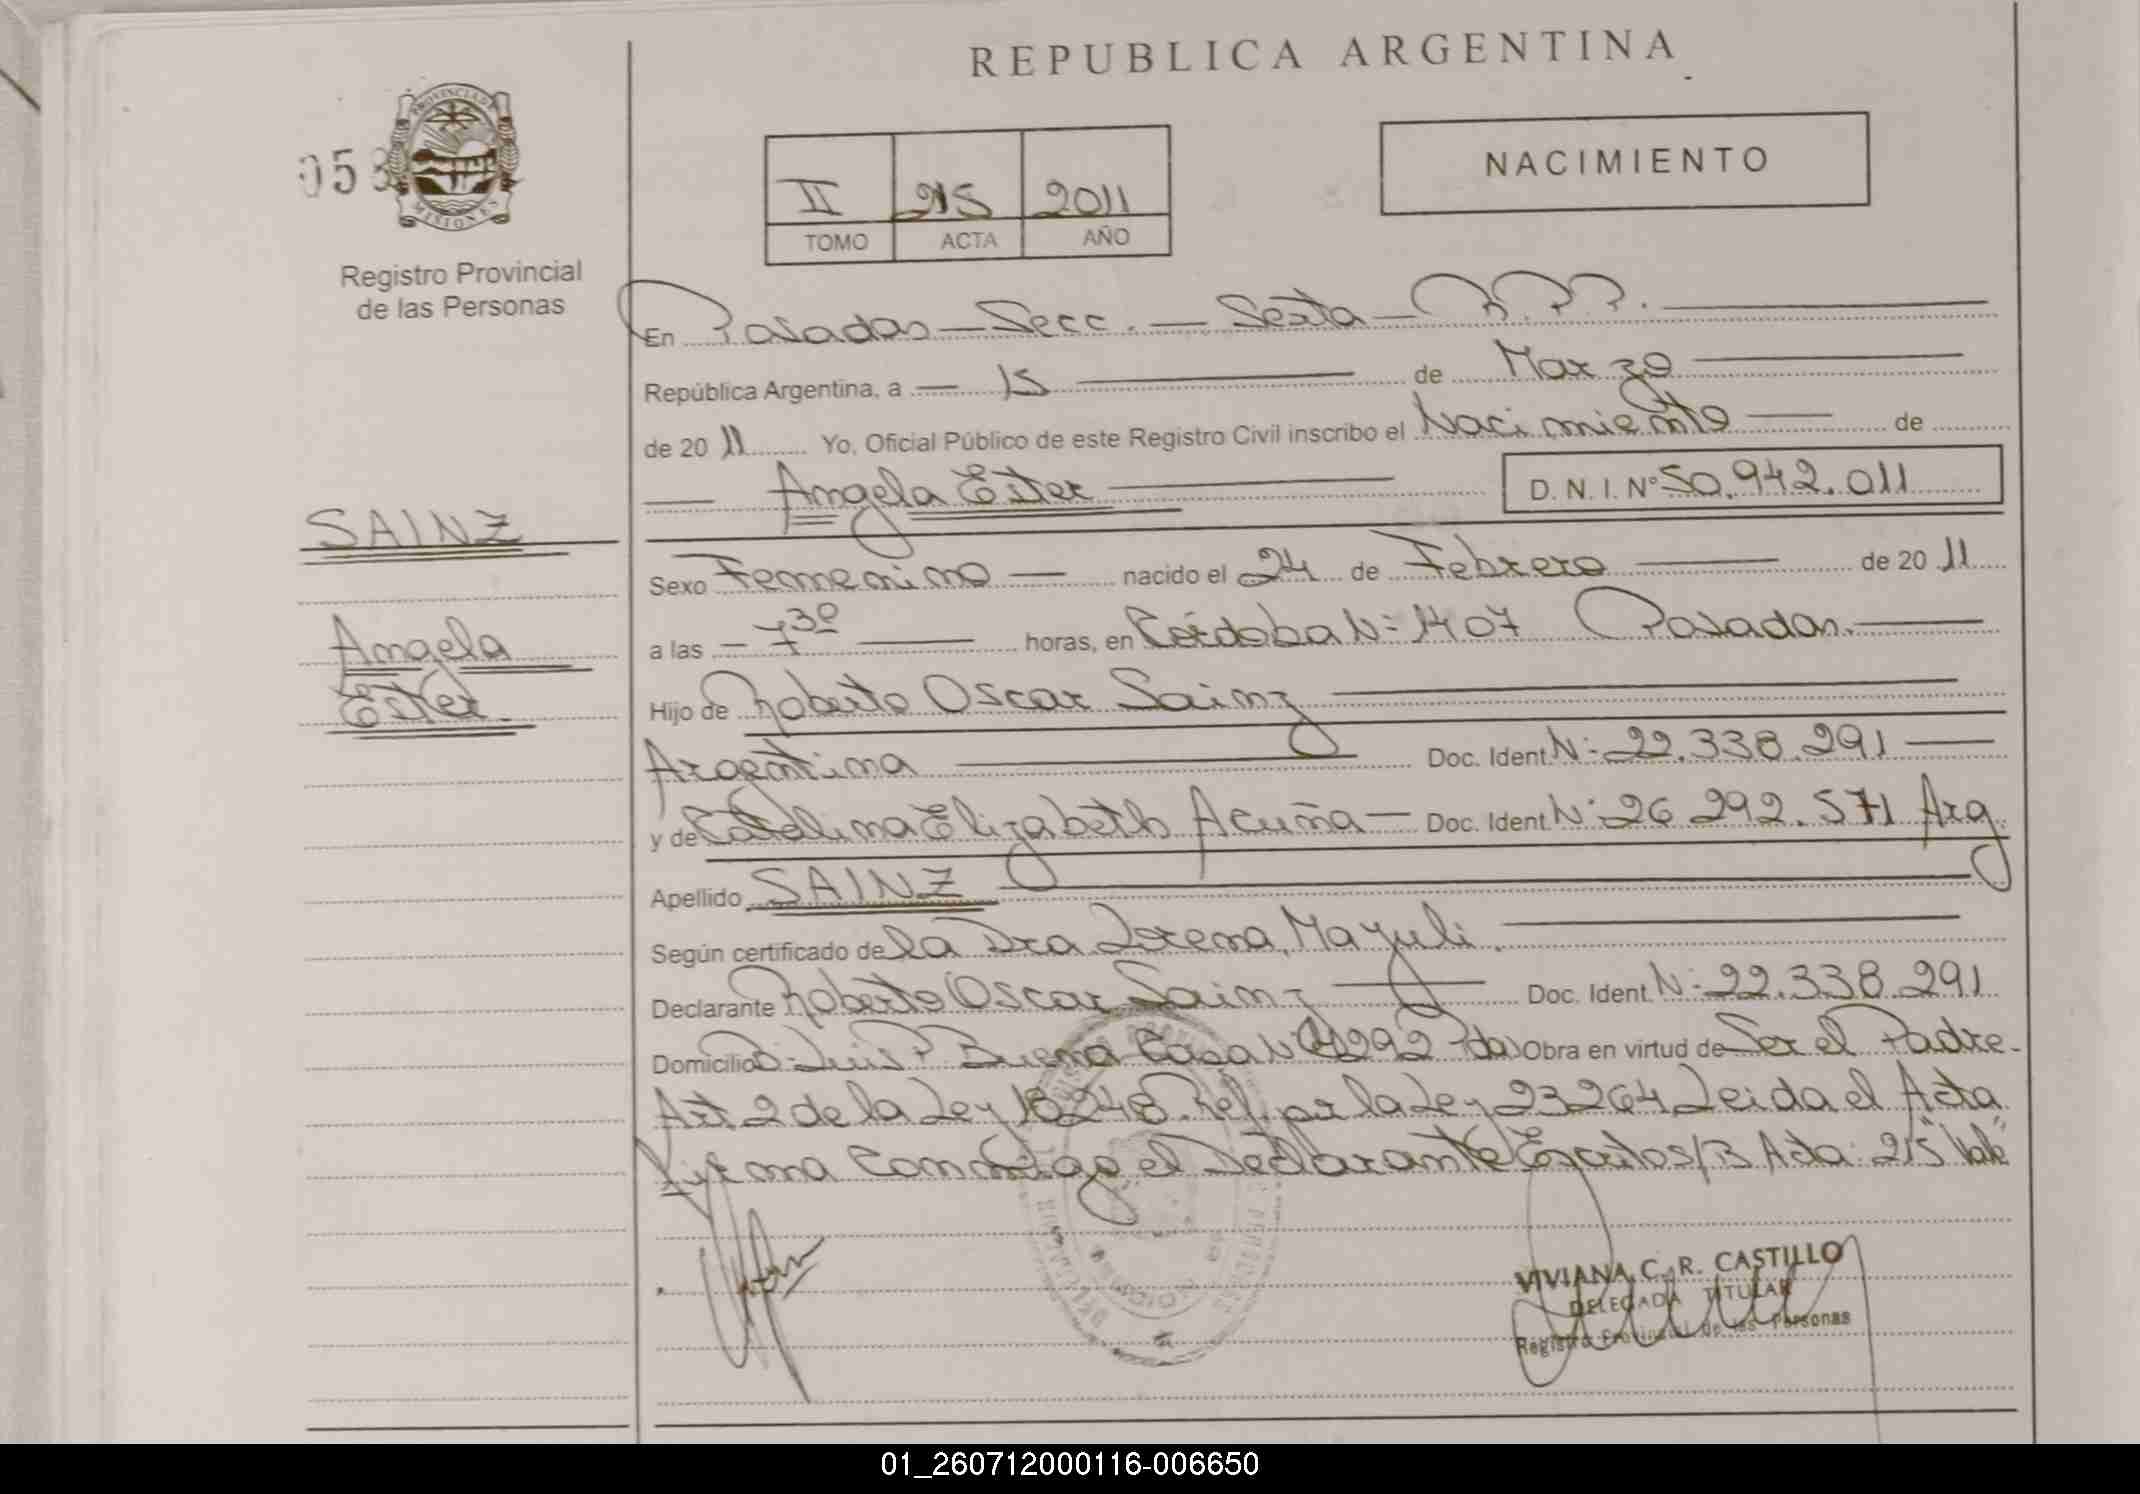 REPUBLICA ARGENTINA
053
PROVINCIA DE
MISIONES
Registro Provincial
de las Personas
II 215 2011
TOMO ACTA AÑO
NACIMIENTO
En Posadas - Secc. - Sexta - R.P.P.
República Argentina, a 15 de Marzo
de 2011 Yo, Oficial Público de este Registro Civil inscribo el Nacimiento de
Angela Ester D. N. I. Nº 50.942.011
SAINZ
Sexo Femenino nacido el 24 de Febrero de 2011
a las 7 30 horas, en Córdoba Nº 1407 Posadas.
Angela
Ester
Hijo de Roberto Oscar Sainz
Argentina Doc. Ident. Nº 22.338.291
y de Catalina Elizabeth Acuña - Doc. Ident. Nº 26.292.571 Arg.
Apellido SAINZ
Según certificado de la Dra Lorena Mayuli.
Declarante Roberto Oscar Sainz Doc. Ident. Nº 22.338.291
Domicilio Bº Luis P. Buena Casa Nº 292 Pdas Obra en virtud de Ser el Padre.
Art 2 de la Ley 18248 Ref. por la Ley 23264 Leida el Acta
firma Conmigo el Declarante S/B Acta: 215 "Vale"
VIVIANA C. R. CASTILLO
DELEGADA TITULAR
Registro Provincial de las Personas
01_260712000116-006650